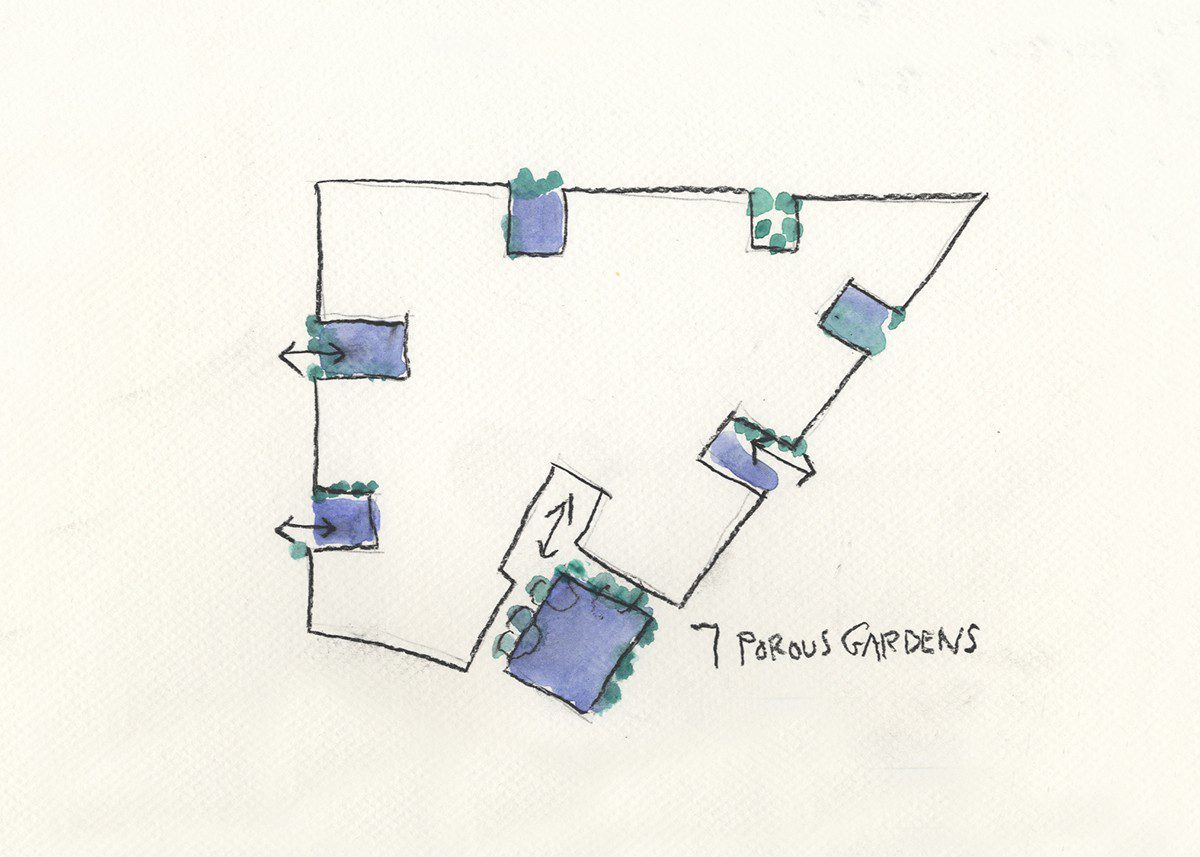 7 POROUS GARDENS